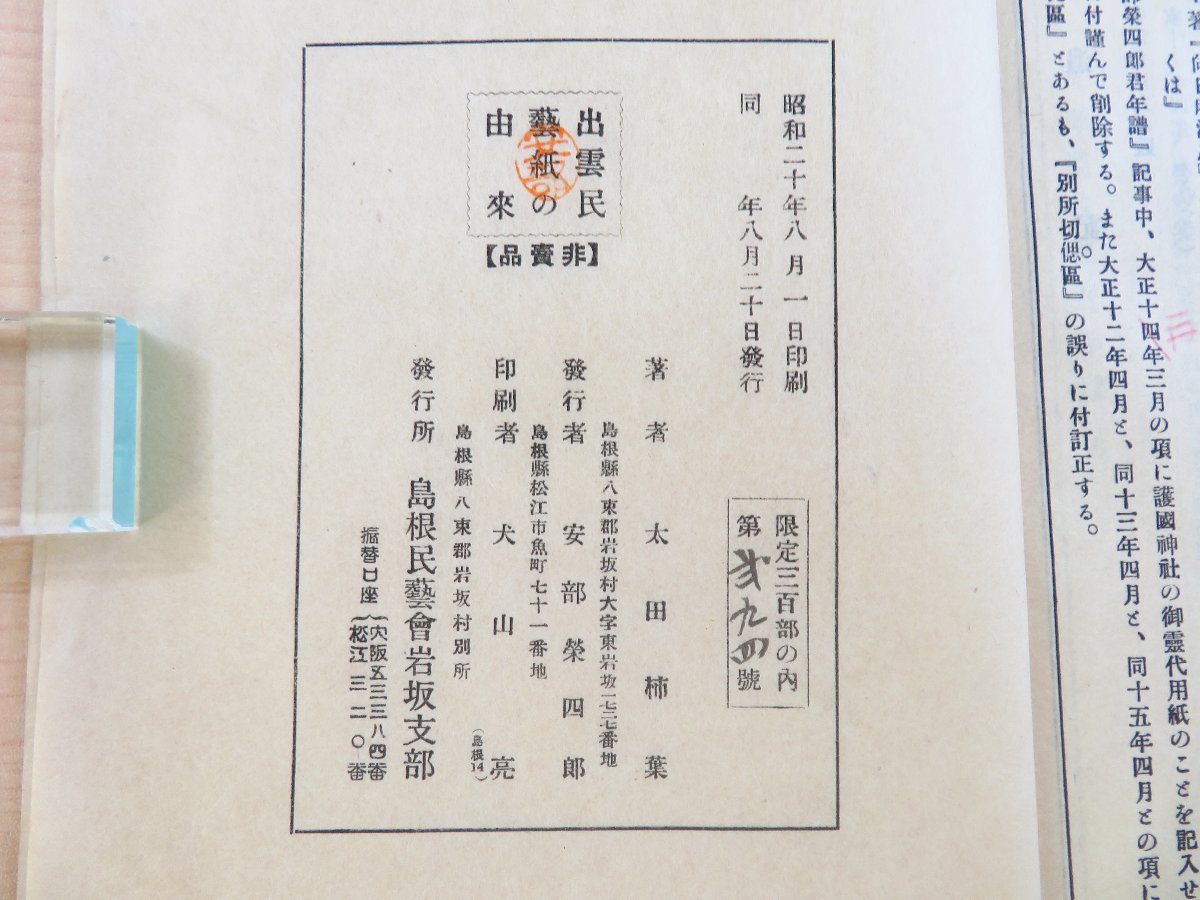 著
くは』
榮四郎君年譜』記事中、大正十四年三月の項に護國神社の御靈代用紙のことを記入せ
付謹んで削除する。また大正十二年四月と、同十三年四月と、同十五年四月との項に
區』とあるも、『別所切偲區』の誤りに付訂正する。
昭和二十年八月一日印刷
同年八月二十日發行
限定三百部の內
第貳九四號
出雲民
藝紙の
由來
【非賣品】
著者 太田柿葉
島根縣八束郡岩坂村大字東岩坂一七二七番地
發行者 安部榮四郎
島根縣松江市魚町七十一番地
印刷者 犬山亮
(島根14)
島根縣八東郡岩坂村別所
發行所 島根民藝會岩坂支部
振替口座
大阪五三三八四番
松江三二〇番